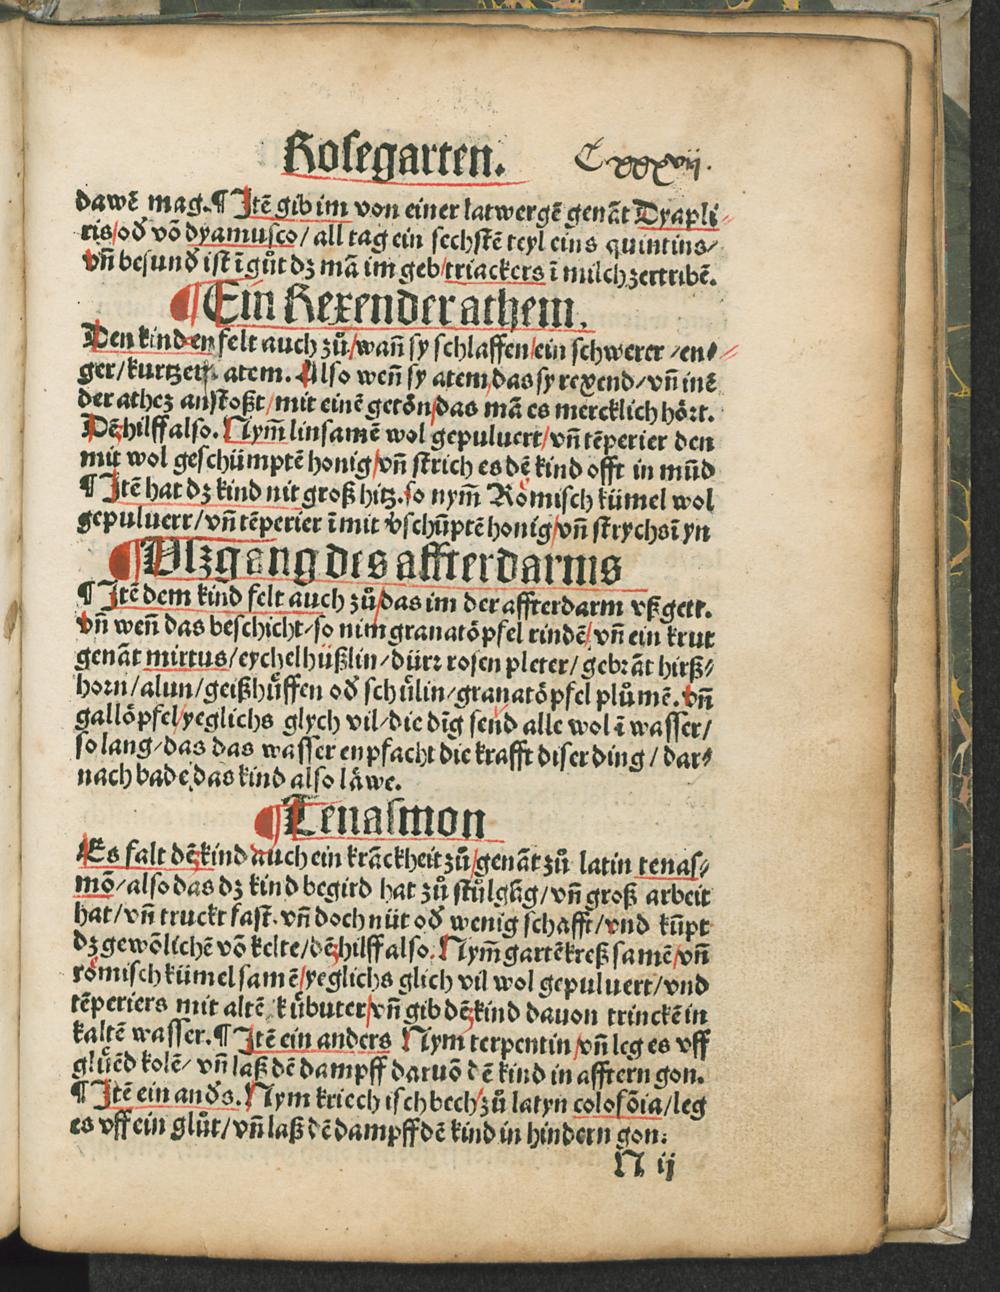 Rosegarten. Cxxxvij.
dawē mag. ¶ Itē gib im von einer latwergē genāt Dyapli⸗
ris/od̕ vō dyamusco/all tag ein sechstē teyl eins quintins/
vn̄ besund̕ ist ī gůt dz mā im geb/triackers ī milch zertribē.
¶ Ein Rexender athem.
Den kinden felt auch zů/wan̄ sy schlaffen/ein schwerer/en⸗
ger/kurtzer atem. Also wen̄ sy atem/das sy rexend/vn̄ inē
der athez anstoßt/mit einē getön/das mā es mercklich hört.
Dē hilff also. Nym̄ linsamē wol gepuluert/vn̄ tēperier den
mit wol geschümptē honig/vn̄ strich es dē kind offt in mūd
¶ Itē hat dz kind nit groß hitz. so nym̄ Römisch kümel wol
gepuluerr/vn̄ tēperier ī mit v̕schūptē honig/vn̄ strychs ī yn
¶ Vßgang des affterdarms
¶ Itē dem kind felt auch zů/das im der affterdarm vßgett.
vn̄ wen̄ das beschicht/so nim granatöpfel rindē/vn̄ ein krut
genāt mirtus/eychelhüßlin/dürr rosen pleter/gebrāt hirß⸗
horn/alun/geißhůffen od̕ schůlin/granatöpfel plůmē. vn̄
gallöpfel/yeglichs glych vil/die dīg send alle wol ī wasser/
so lang/das das wasser enpfacht die krafft diser ding/dar⸗
nach bade das kind also läwe.
¶ Tenasmon
Es falt dē kind auch ein krāckheit zů/genāt zů latin tenas⸗
mō/also das dz kind begird hat zů stůlgāg/vn̄ groß arbeit
hat/vn̄ truckt fast. vn̄ doch nüt od̕ wenig schafft/vnd kūpt
dz gewōlichē vō kelte/dē hilff also. Nym̄ gartēkreß samē/vn̄
römisch kümel samē/yeglichs glich vil wol gepuluert/vnd
tēperiers mit altē kůbuter/vn̄ gib dē kind dauon trinckē in
kaltē wasser. ¶ Itē ein anders Nym terpentin/vn̄ leg es vff
glüēd kolē/vn̄ laß dē dampff daruō dē kind in afftern gon.
¶ Itē ein and̕s. Nym kriechisch bech/zů latyn colofōia/leg
es vff ein glůt/vn̄ laß dē dampff dē kind in hindern gon:
N ij